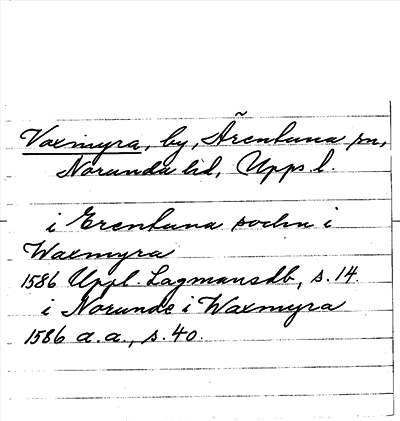 Vaxmyra, by, Ärentuna sn,
Norunda hd, Upps. l.
i Erentuna sochn i
Waxmyra
1586 Uppl. Lagmansdb, s. 14.
i Norunde i Waxmyra
1586 a.a., s. 40.